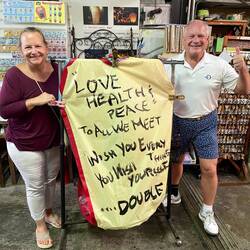 "LOVE
HEALTH &
PEACE"
TO ALL WE MEET
WISH YOU EVERY
THING
YOU WISH YOURSELF
....DOUBLE